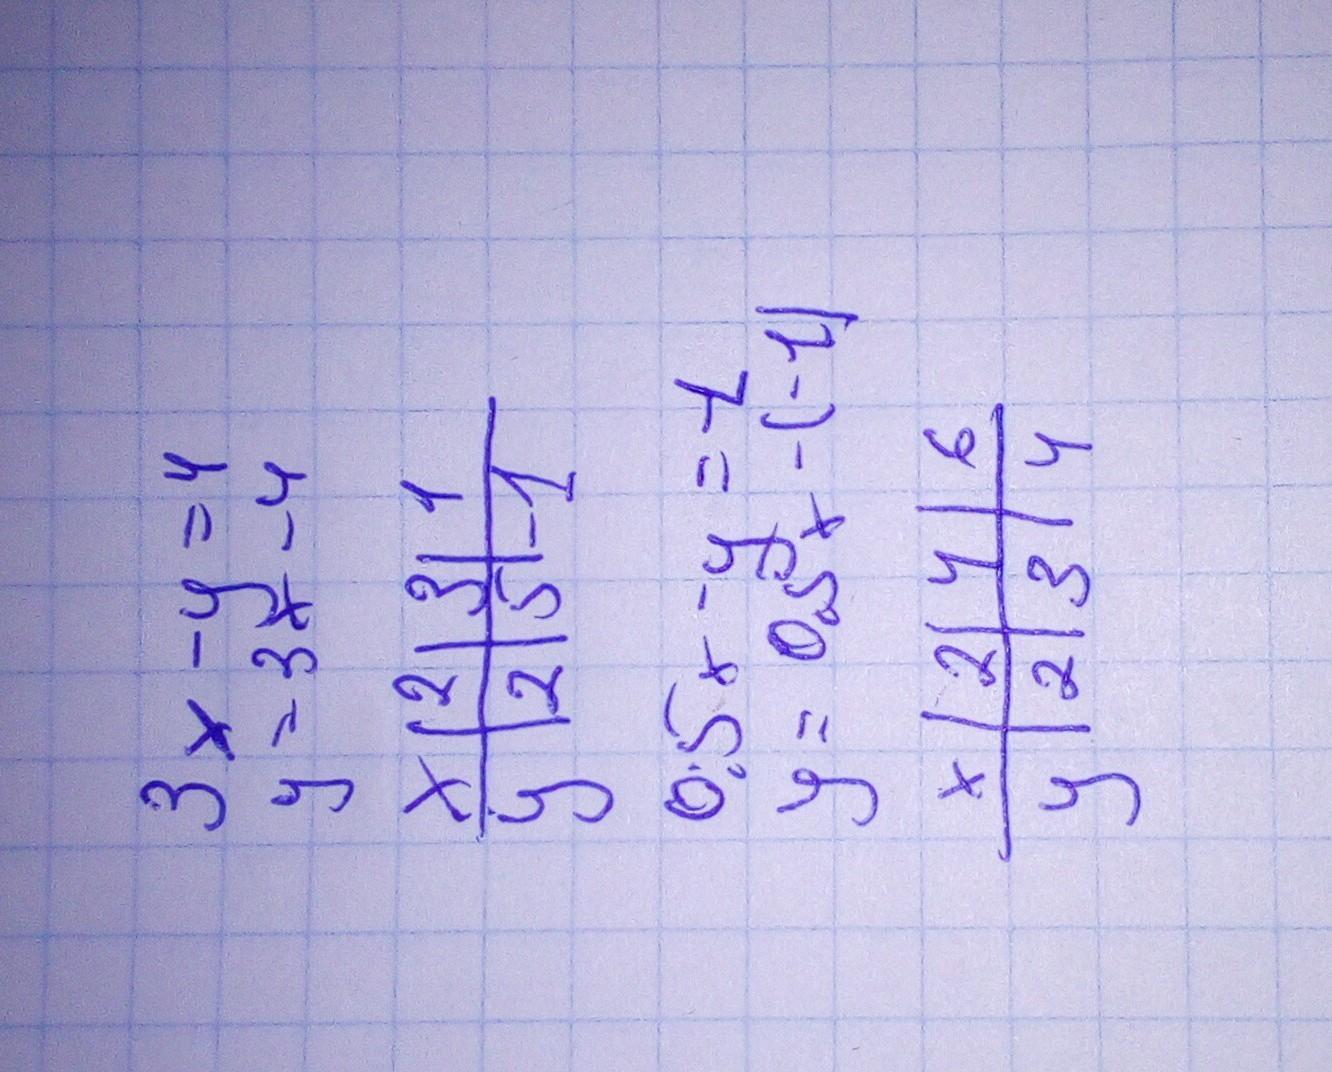 3x - y = 4
y = 3x - 4
x | 2 | 3 | 1
y | 2 | 5 | -1
0,5x - y = -1
y = 0,5x - (-1)
x | 2 | 4 | 6
y | 2 | 3 | 4